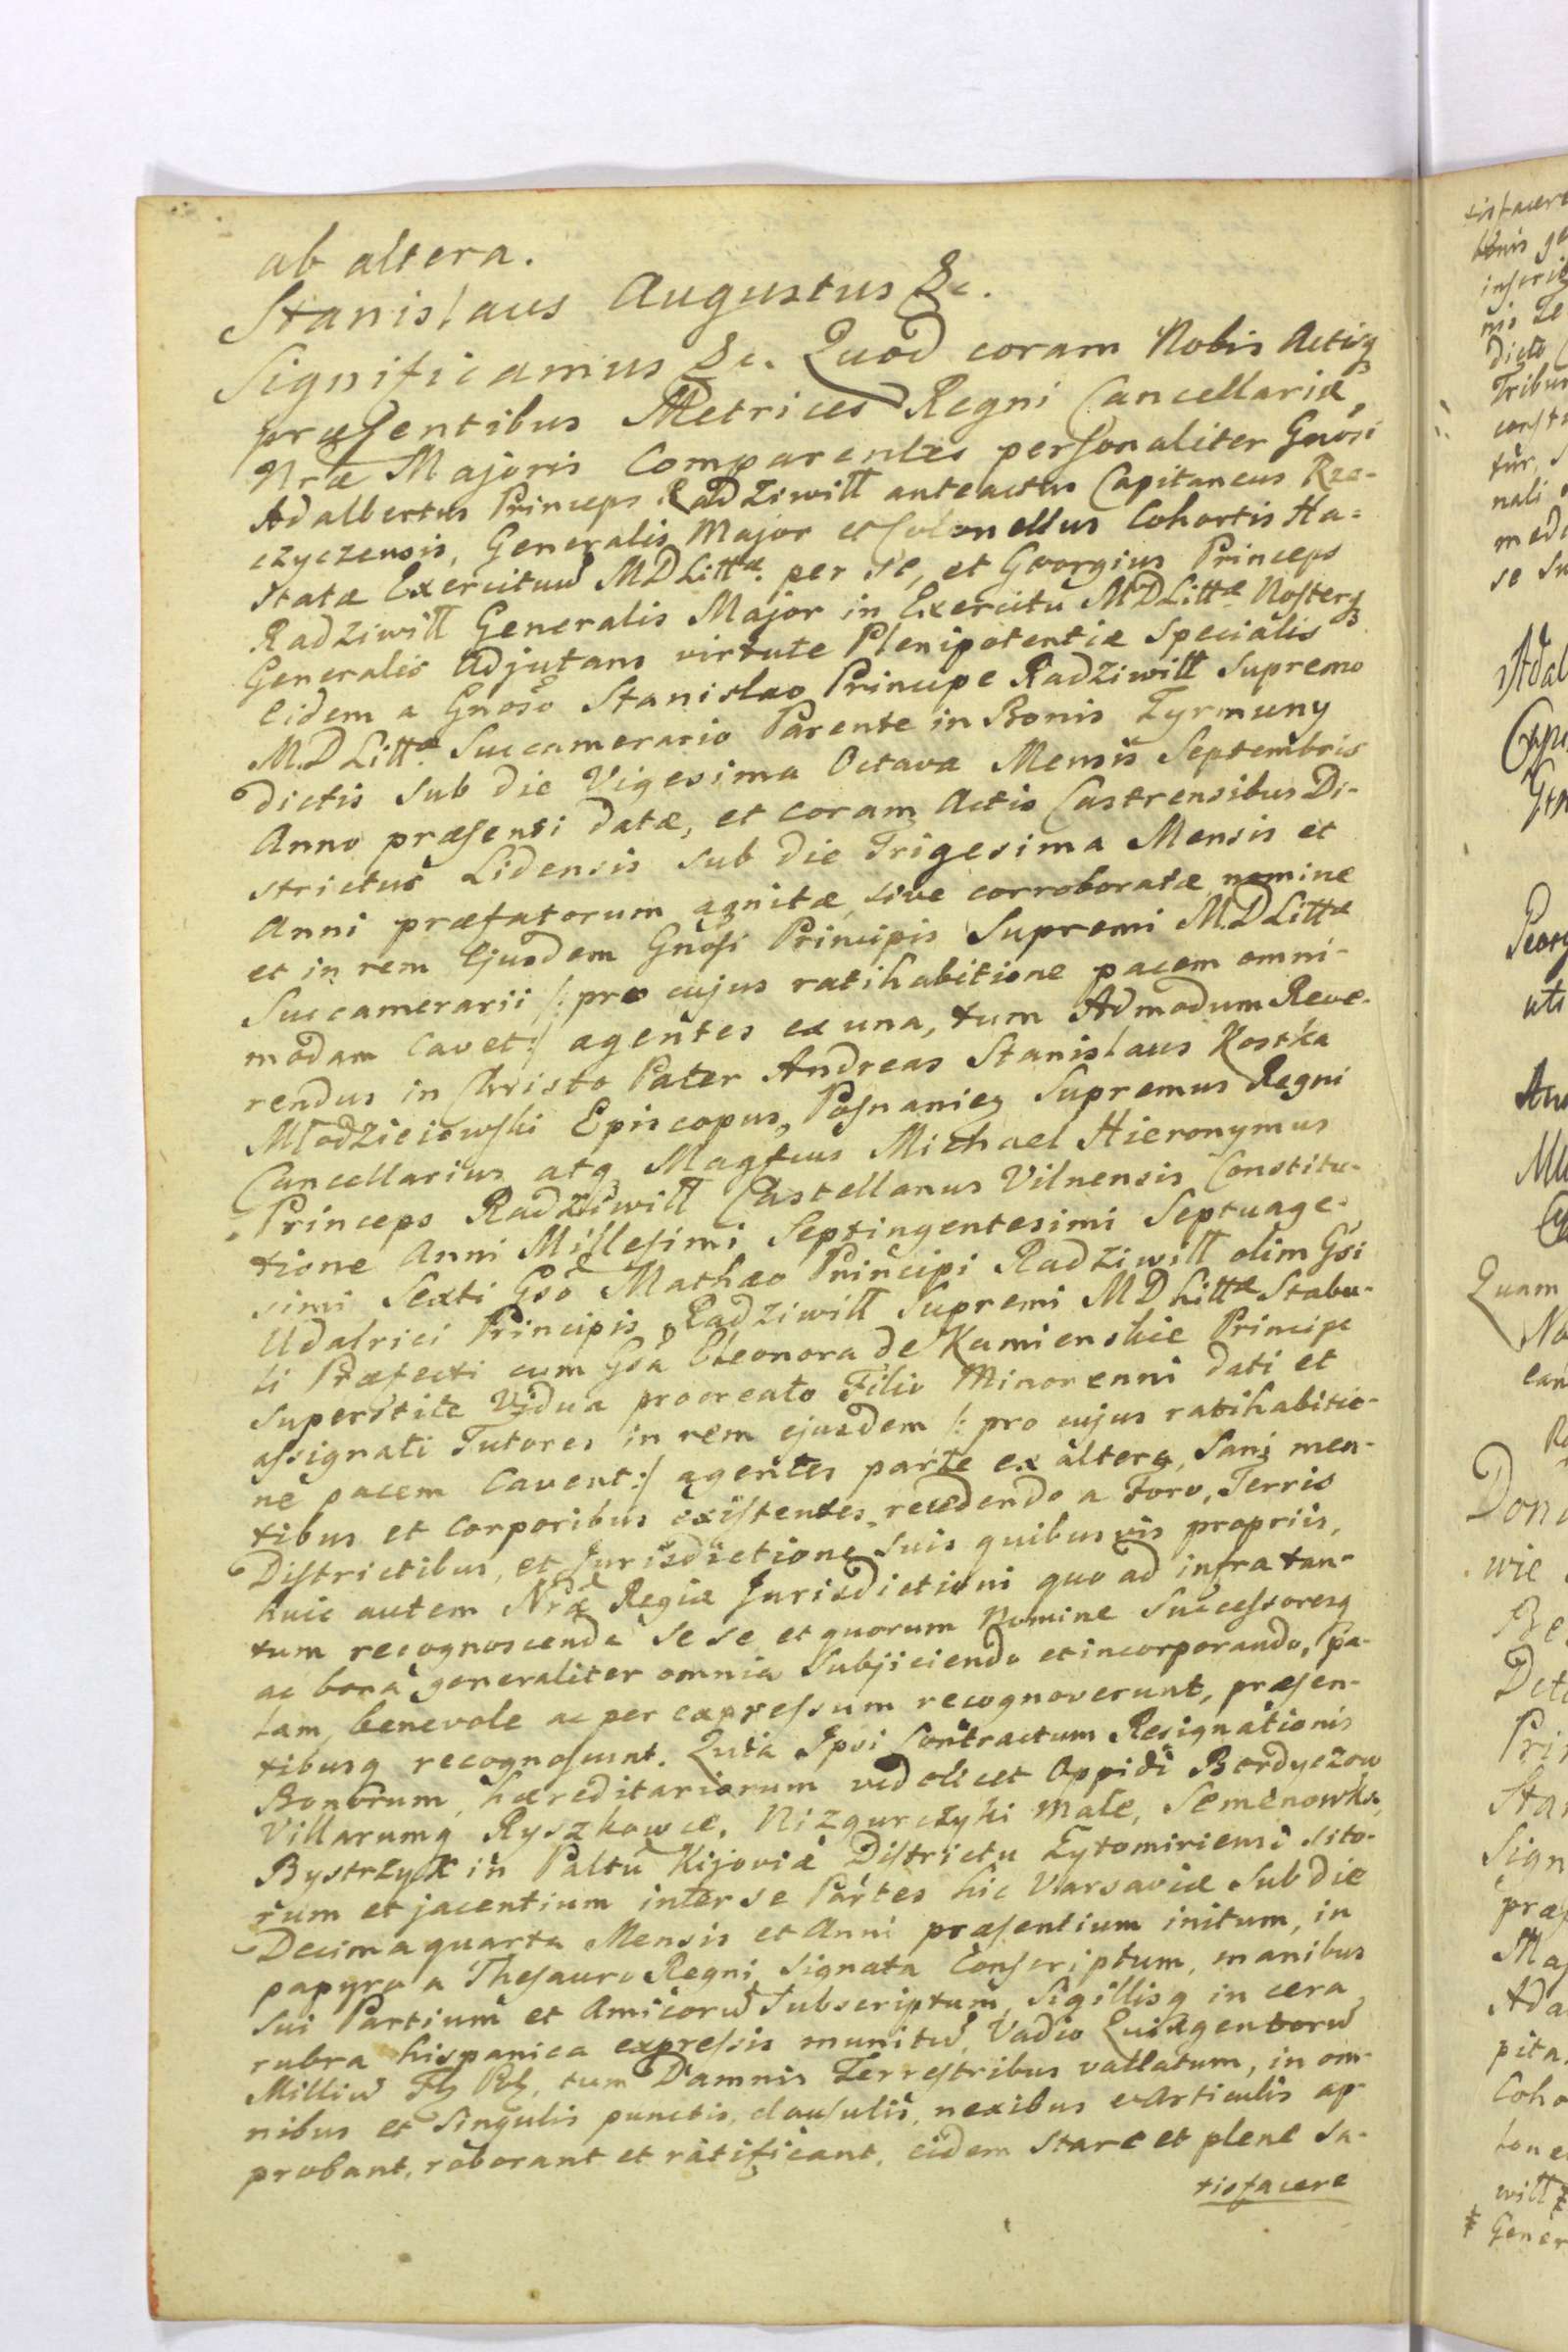 ab altera.
Stanislaus Augustus &c.
Significamus &c. Quod coram Nobis Actisq
præsentibus Metrices Regni Cancellariæ
Nræ Majoris Comparentes personaliter Gnosi
Adalbertus Princeps Radziwiłł anteactus Capitaneus Rze-
czyczensis, Generalis Major et Colonellus Cohortis Ha-
statæ Exercituu MDLittæ. per se, et Georgius Princeps
Radziwiłł Generalis Major in Exercitu MDLittæ Nosterq
Generalis Adjutans virtute Plenipotentiæ Specialis
eidem a Gnoso Stanislao Principe Radziwiłł Supremo
M.D Littæ Succamerario Parente in Bonis Zyrmuny
dictis sub die Vigesima Octava Mensis Septembris
Anno præsenti datæ, et coram Actis Castrensibus Di-
strictus Lidensis sub die Trigesima Mensis et
Anni præfatorum agnitæ sive corroboratæ nomine
et in rem Ejusdem Gnosi Principis Supremi M.D Littæ
Succamerarii /: pro cujus ratihabitione pacem omni-
modam cavet :/ agentes ex una, tum Admodum Reve-
rendus in Christo Pater Andreas Stanislaus Kostka
Młodzieiowski Episcopus Posnanieȝ Supremus Regni
Cancellarius atq Magfcus Michael Hieronymus
Princeps Radziwiłł Castellanus Vilnensis Constitu-
tione Anni Millesimi Septingentesimi Septuage-
simi Sexti Gso Mathæo Principi Radziwiłł olim Gsi
Udalrici Principis Radziwiłł Supremi M D Littæ Stabu-
li Præfecti cum Gsa Eleonora de Kamienskie Principe
superstite Vidua procreato Filio Minorenni dati et
assignati Tutores in rem ejusdem /: pro cujus ratihabitio-
ne pacem Cavent :/ agentes parte ex altera, Sani men-
tibus et Corporibus existentes, recedendo a Foro, Terris
Districtibus, et Jurisdictione suis quibusvis propriis,
huic autem Nræ Regiæ Jurisdictioni quo ad infra tan-
tum recognoscenda se se et quorum Nomine Successoresq
ac bona generaliter omnia Subjiciendo et incorporando, Pa-
lam, benevole ac per expressum recognoverunt, præsen-
tibusq recognoscunt. Quia Ipsi Contractum Resignationis
Bonorum, hæreditariorum videlicet Oppidi Berdyczow
Villarumq Ryszkowce, Nizgurczyki Małe, Semenowka,
Bystrzyk in Paltu Kijoviæ Districtu Zytomiriensi sito-
rum et jacentium inter se Partes hic Varsaviæ Sub die
Decima quarta Mensis et Anni præsentium initum, in
papyro a Thesauro Regni Signata Conscriptum, manibus
sui Partium et Amicoru Subscriptum, Sigillisq in cera
rubra hispanica expressis munitu, Vadio Quingentoru
Milliu Flȝ Polȝ, tum Damnis Terrestribus vallatum, in om-
nibus et singulis punctis, clausulis, nexibus et Articulis ap-
probant, roborant et ratificant, eidem stare et plene sa-
tisfacere